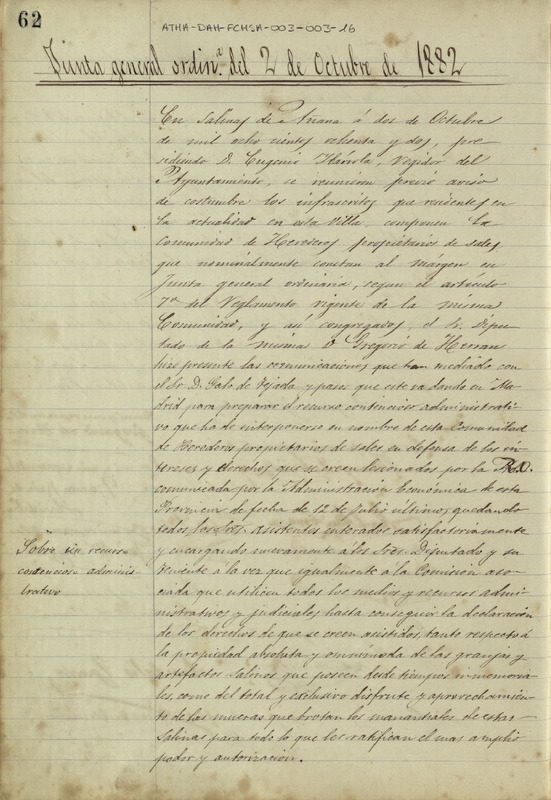 62
ATHA-DAH-FCHSA-003-003-16
Junta general ordin.ª del 2 de Octubre de 1882
En Salinas de Añana á dos de Octubre
de mil ocho cientos ochenta y dos, pre
sidiendo D. Eugenio Regidor del
Ayuntamiento, se reunieron previo aviso
de costumbre los infrascritos que residentes en
la actualidad en esta Villa, componen la
Comunidad de Herederos propietarios de sales
que nominalmente constan al márgen en
Junta general ordinaria, segun el artículo
7º del Reglamento vigente de la misma
Comunidad, y asi congregados, el Sr. Dipu
tado de la misma D Gregorio de Herran
hizo presente las comunicaciones que han mediado con
el Sr. D. Galo de Tejada y pasos que este va dando en Ma
drid para preparar el recurso contencioso administrati-
vo que ha de interponerse en nombre de esta Comunidad
de Herederos propietarios de sales en defensa de los in-
tereses y derechos que se creen lesionados por la R.O.
comunicada por la Administración Económica de esta
Provincia de fecha de 12 de Julio último, quedando
todos los Sres. asistentes enterados satisfactoriamente
Sobre un recurso
contencioso adminis-
trativo
y encargando nuevamente á los Sres. Diputado y su
Teniente á la vez que igualmente á la Comisión aso-
ciada que utilicen todos los medios y recursos admi-
nistrativos y judiciales hasta conseguir la declaración
de los derechos de que se creen asistidos, tanto respecto á
la propiedad absoluta y omnímoda de las granjas y
artefactos Salinos que poseen desde tiempos inmemoria-
les, como del total y exclusivo disfrute y aprovechamien-
to de las mueras que brotan los manantiales de estas
Salinas para todo lo que les ratifican el mas amplio
poder y autorización.